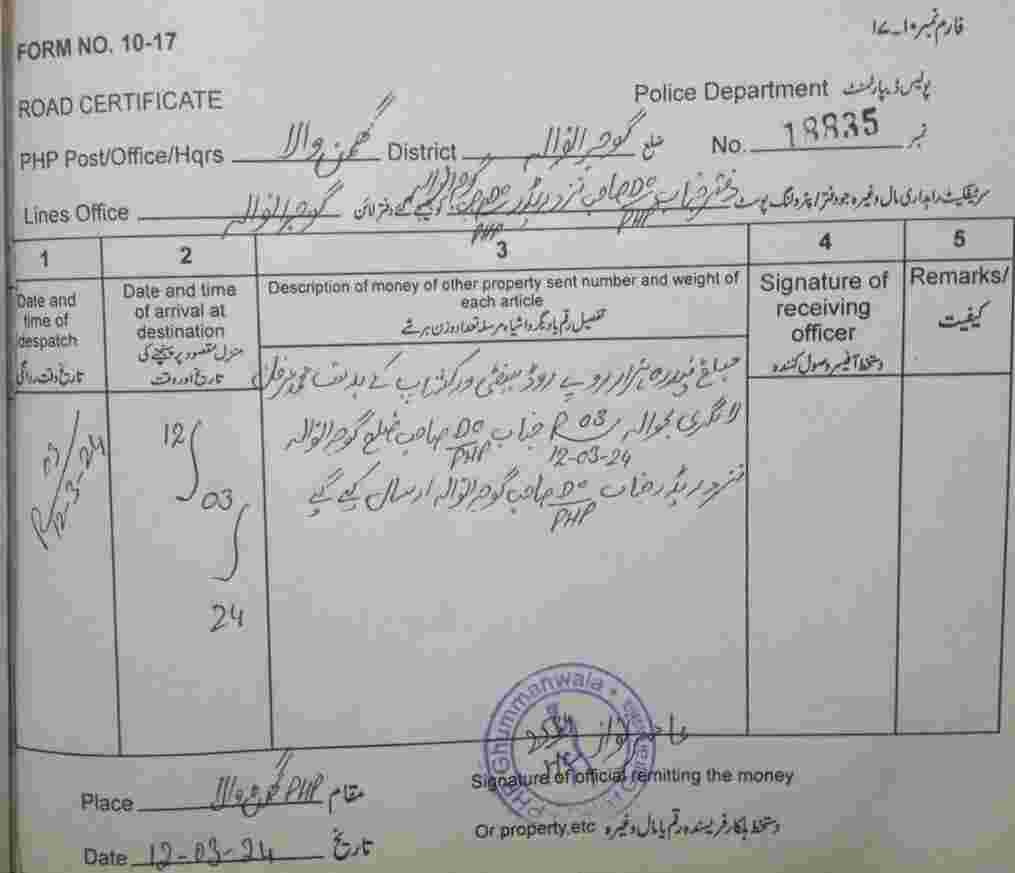 FORM NO. 10-17
فارم نمبر ۱۰۔۱۷
ROAD CERTIFICATE
Police Department پولیس ڈیپارٹمنٹ
PHP Post/Office/Hqrs گھمن والا District گوجرانوالہ ضلع No. 18835 نمبر
Lines Office گوجرانوالہ
سرٹیفکیٹ راہداری مال وغیرہ جو دفتر/پٹرولنگ پوسٹ دفتر جناب DO PHP صاحب نزد ریڈر DO PHP گوجرانوالہ کو بھیجے گئے دفتر لائن
1 2 3 4 5
Date and time of despatch
تاریخ وقت روانگی
Date and time of arrival at destination
منزل مقصود پر پہنچنے کی تاریخ اور وقت
Description of money of other property sent number and weight of each article
تفصیل رقم یا دیگر اشیاء مرسلہ تعداد وزن ہر شے
Signature of receiving officer
دستخط آفیسر وصول کنندہ
Remarks/
کیفیت
12-3-24
12
03
24
مبلغ پندرہ ہزار روپے روڈ سیفٹی ورکشاپ کے بدست محمد
لانگری بحوالہ R 03 12-03-24 جناب DO PHP صاحب ضلع گوجرانوالہ
نزد ریڈر جناب DO PHP صاحب گوجرانوالہ ارسال کیے گئے
PHP Ghummanwala
نواز
Signature of official remitting the money
Or property,etc دستخط اہلکار فریسندہ رقم یا مال وغیرہ
Place PHP گھمن والا مقام
Date 12-03-24 تاریخ